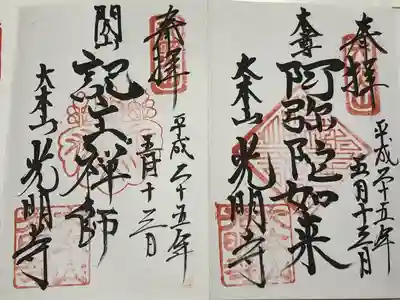 奉拝
平成二十五年
五月十三日
本尊
阿弥陀如来
大本山 光明寺
奉拝
平成二十五年
五月十三日
開山
記主禅師
大本山 光明寺